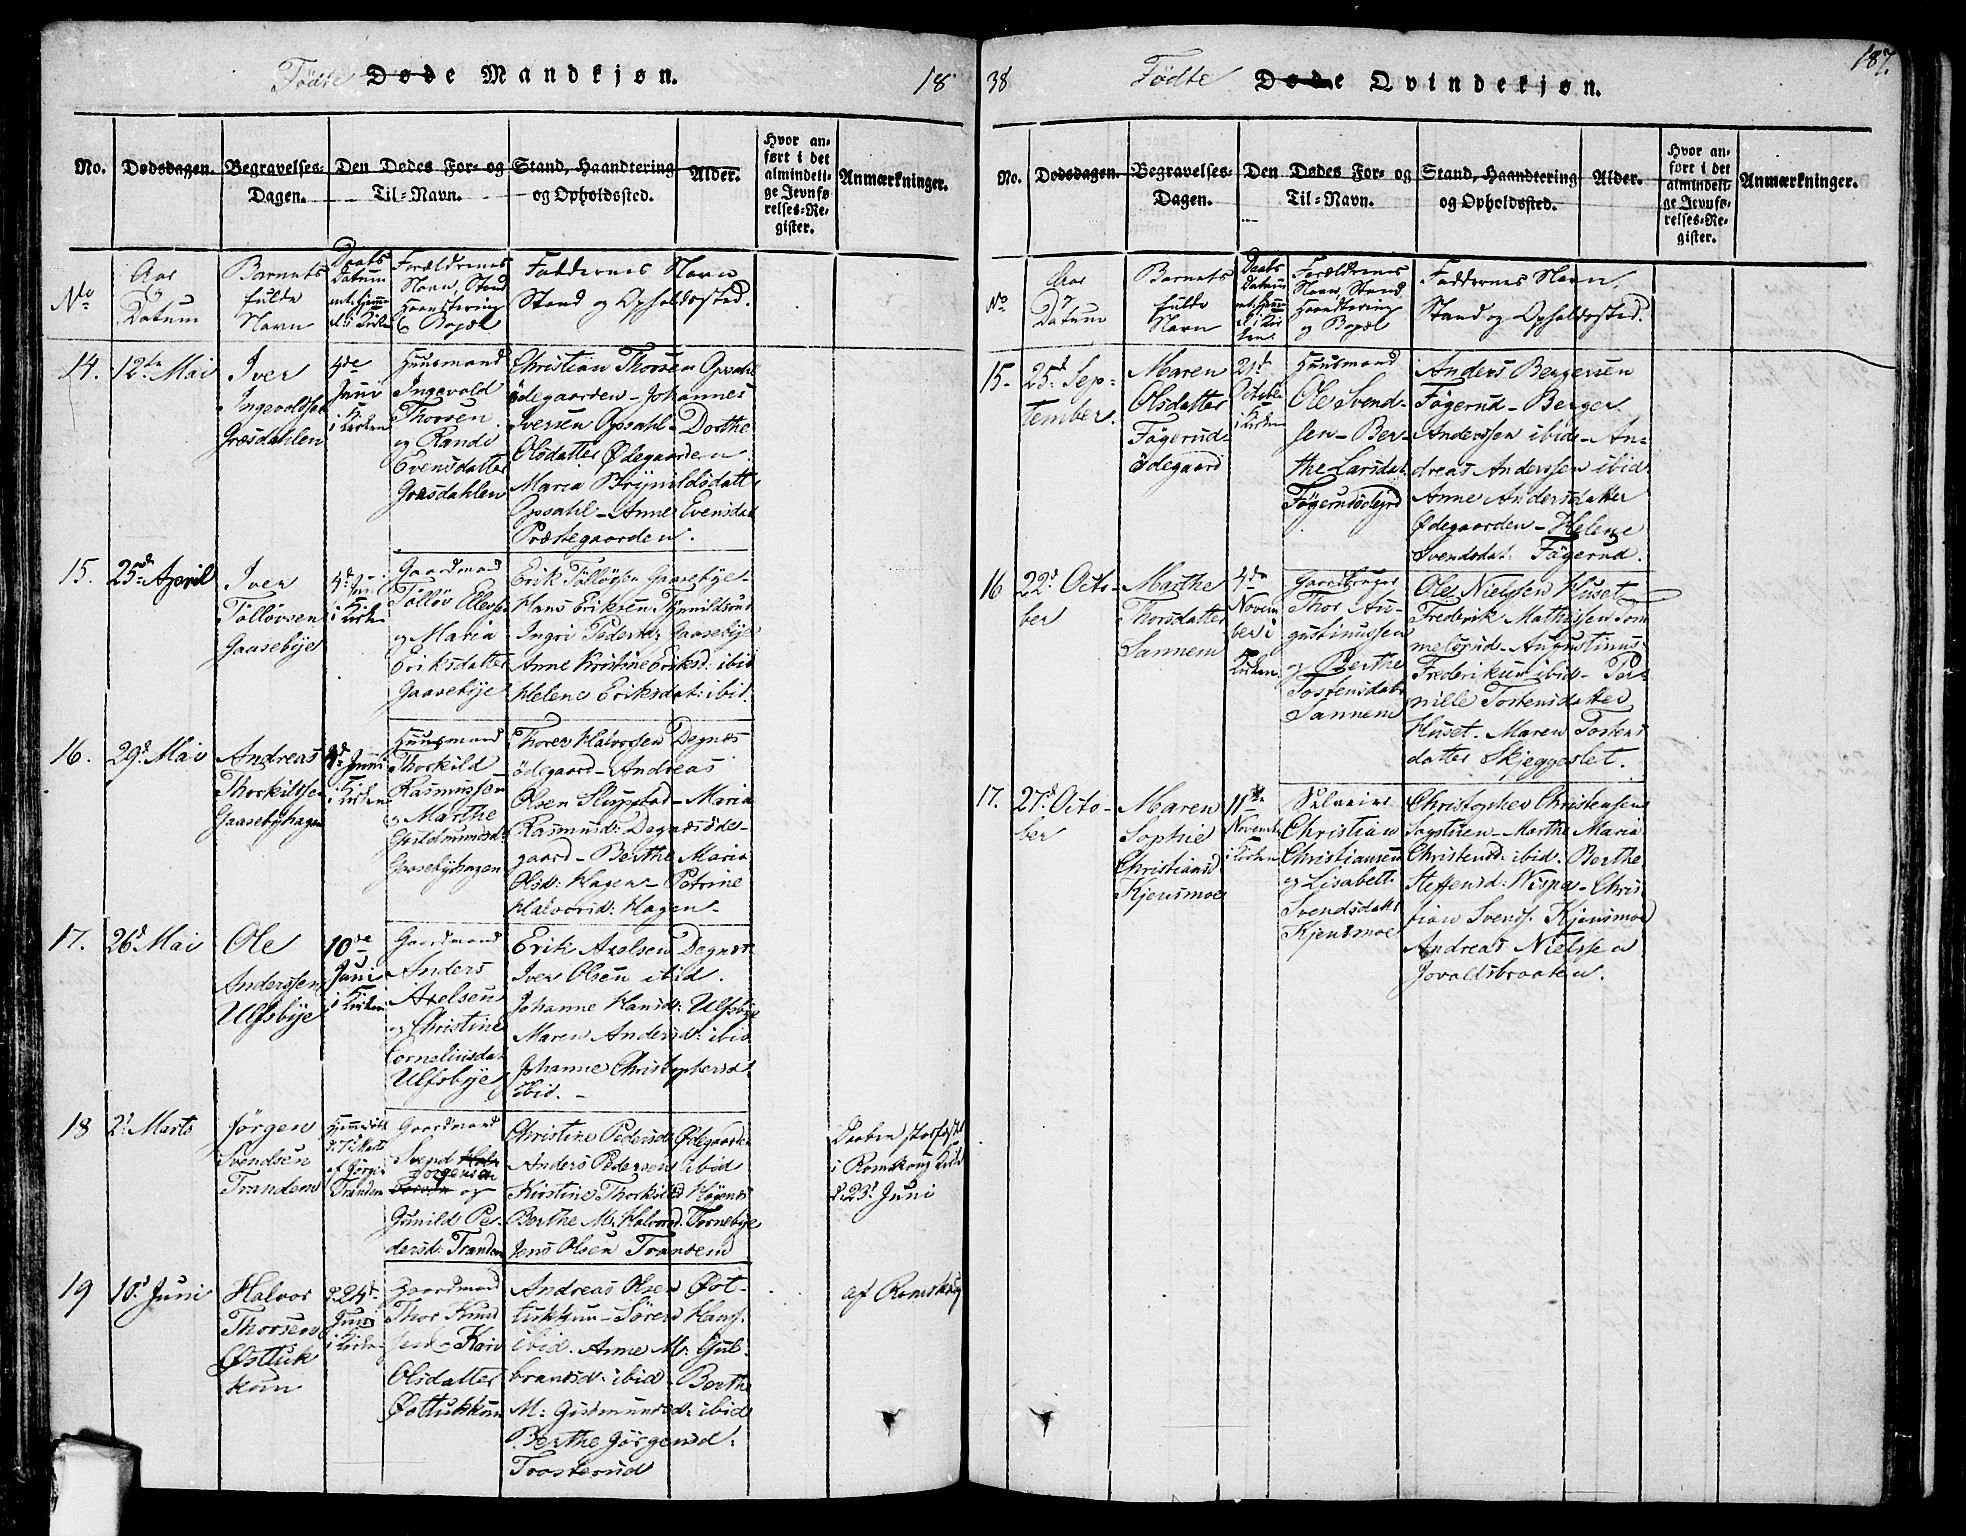 Fødte Døde Mandkjøn. 18
No.
Dødsdagen.
Begravelses-
Dagen.
Den Dødes For- og
Til-Navn.
Stand, Haandtering
og Opholdssted.
Alder.
Hvor an-
ført i det
almindeli-
ge Jevnfø-
relses-Re-
gister.
Anmærkninger.
No
Aar
og
Datum
Barnets
fulde
Navn
Daabs
Datum
Forældrenes
Navn, Stand
Haandtering
& Bopæl
Faddernes Navn
Stand og Opholdssted.
14.
12te Mai
Iver
Ingevoldsen
Græsdahlen
4de
Juni
i Kirken
Huusmand
Ingevold
Thorsen
og Randi
Evensdatter
Græsdahlen
Christian Thorsen Opsahl
ødegaarden - Johannes
Iverssen Opsahl - Dorthe
Olsdatter Ødegaarden
Maria Brynildsdatt
Opsahl - Anne Evensdat
Præstegaarden.
15.
25de April
Iver
Tolløvsen
Gaasebye
4de Juni
i Kirken
Gaardmand
Tolløv Ellefsen
og Maria
Eriksdatter
Gaasebye
Erik Tolløvsen Gaasebye -
Hans Eriksen Tynnildsrud
Ingri Pedersd: Gaasebye
Anne Kristine Eriksd: ibid
Helene Eriksdat: ibid.
16.
29d Mai
Andreas
Thorkildsen
Gaasebyhagen
Juni
i Kirken
Huusmand
Thorkild
Rasmussen
og Marthe
Guldmundsd:
Gaasebyhagen
Thorer Halvorsen Degnæs
ødegaard - Andreas
Olsen Slupstad - Maria
Rasmusd: Degnæsøde-
gaard - Berthe Maria
Olsd: Hagen - Petrine
Halvorsd: Hagen -
17.
26d Mai
Ole
Anderssen
Ulfsbye
10de
Juni
i Kirken
Gaardmand
Anders
Axelsen
og Christine
Corneliusdat
Ulfsbye
Erik Axelsen Degnæs
Iver Olsen ibid.
Johanne Hansd: Ulfsbye
Maren Andersd: ibid
Johanne Christophersd
ibid. -
18
2d Marts
Jørgen
Svendsen
Trandem
Hjemmedøbt
d. 7d Marts
af Jørgen
Trandem
Gaardmand
Svend
Jørgensen
og
Gunild Pe-
dersd: Trandem
Christine Pedersd Ødegaarden
Anders Pedersen ibid
Kirstine Thorkilsd Høgenæs
Berthe M: Halvorsd: Tornebye
Jens Olsen Trandem
Daaben stadfæstet
i Romskoug Kirke
d. 23d Juni
19
10d Juni
Halvor
Thorsen
Østtuk
kun
d. 24d
Juni
i Kirken
Gaardmand
Thor Knud
sen - Kari
Olsdatter
Østtukkun
Andreas Olsen Øst-
tukkun - Søren Hansf.
ibid. Anne M: Gul-
brandsd: ibid - Berthe
M: Gudmundsd: ibid
Berthe Jørgensd:
Trosterud
af Romskoug
38 Fødte Døde Qvindekjøn. 187.
No.
Dødsdagen.
Begravelses-
Dagen.
Den Dødes For- og
Til-Navn.
Stand, Haandtering
og Opholdssted.
Alder.
Hvor an-
ført i det
almindeli-
ge Jevnfø-
relses-Re-
gister.
Anmærkninger.
No
Aar
og
Datum
Barnets
fulde
Navn
Daabs
Datum
Forældrenes
Navn, Stand
Haandtering
og Bopæl
Faddernes Navn,
Stand og Opholdssted.
15-
25d Sep-
tember.
Maren
Olsdatter
Fögerud-
ödegaard
21d
October
i Kirken
Huusmand
Ole Svend-
sen - Ber-
the Larsdat
Anders Bergersen
Fögerud - Berger
Anderssen ibid - An-
dreas Anderssen ibid
Anne Andersdatter
Ødegaarden - Helene
Svendsdat: Fögerud.
16
22d Octo-
ber
Marthe
Thorsdatter
Sannem
4de
Novem
ber i
Kirken
Gaardbruger
Thor Au-
gustinussen
og Berthe
Tostensdatt
Sannem
Ole Nielssen Huset -
Frederik Mathissen Tom
melsrud - Augustinus
ibid - Per-
nille Tostensdatter
Huset. Maren Tostens
datter Skjeggestet.
17.
27d Octo-
ber
Maren
Sophie
Christiansd
Kjensmoe
11te
November
i Kirken
Christian
Christiansen
og Lisabett
Svendsdatt
Kjensmoe
Christopher Christensen
Sagstuen - Marthe Maria
Christensd: ibid. Berthe
Steffensd: - Chris
tian Svends. Kjensmoe
Andreas Nielssen
Jovaldsbraaten.